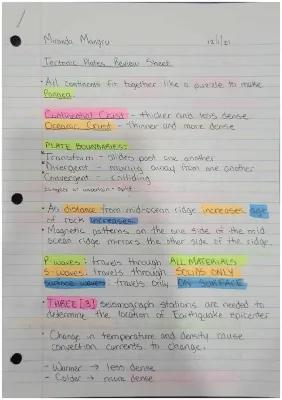 Miranda Mangru 12/1/21
Tectonic Plates Review Sheet
• All continents fit together like a puzzle to make
Pangea.
Continental Crust - thicker and less dense
Oceanic Crust - thinner and more dense
PLATE BOUNDARIES:
Transform - slides past one another
Divergent - moving away from one another
Convergent - colliding
• As distance from mid-ocean ridge increases, age
of rock increases.
• Magnetic patterns on the one side of the mid
ocean ridge mirrors the other side of the ridge.
P-waves: travels through ALL MATERIALS
S-waves: travels through SOLIDS ONLY
surface waves: travels only ON SURFACE
• THREE [3] seismograph stations are needed to
determine the location of Earthquake epicenter
• Change in temperature and density cause
convection currents to change.
- Warmer → less dense
- Colder → more dense